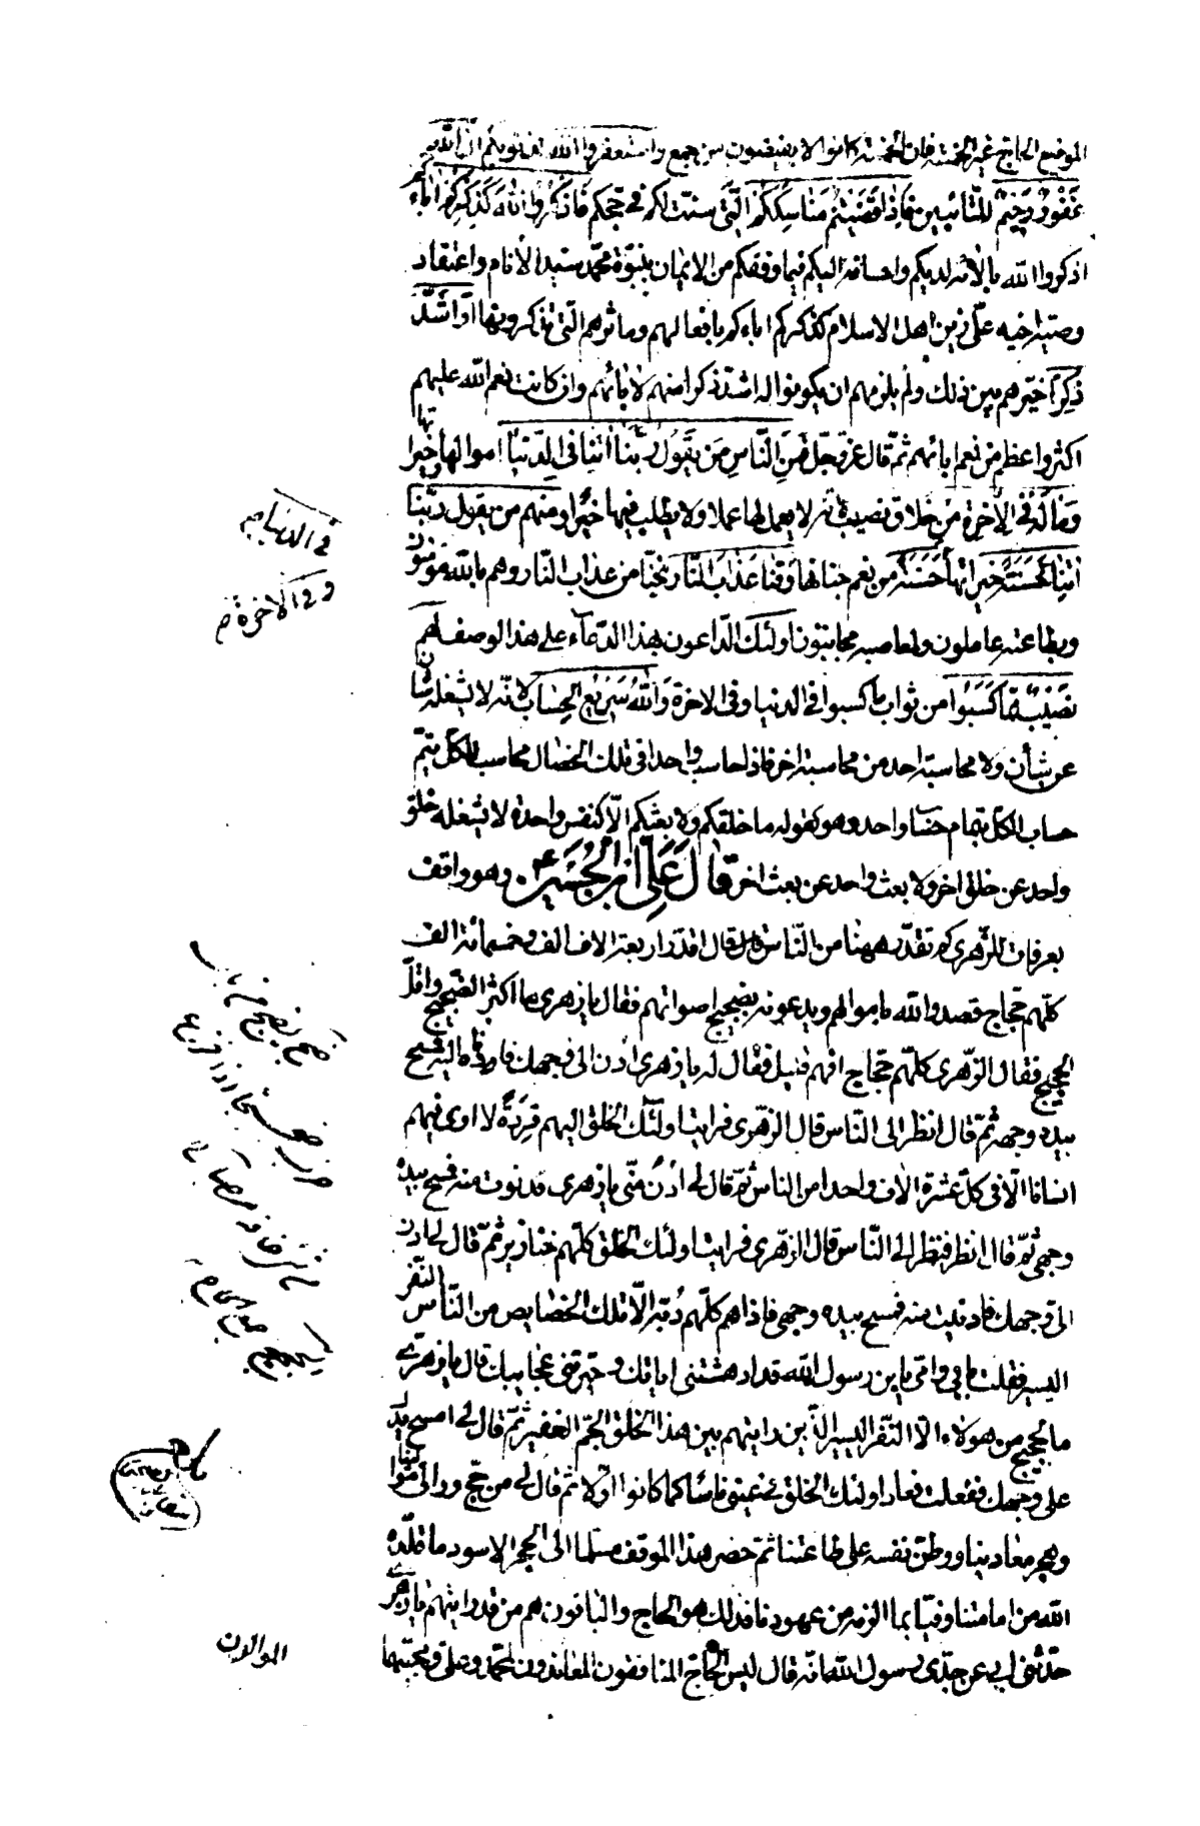 الموضع الحاج غير الحمس فان الحمس كانوا لا يفيضون من جمع واستغفروا الله لذنوبكم ان الله
غَفُورٌ رَحِيمٌ للتّائبين فَاِذَا قَضَيْتُمْ مَنَاسِكَكُمْ الّتى سنّت لكم فى حجّكم فَاذْكُرُوا اللهَ كَذِكْرِكُمْ اٰبَاءَكُمْ
اذكروا الله بالآئه لديكم واحسانه اليكم فيما وفقكم من الايمان بنبوّة محمّد سيد الانام واعتقاد
وصيّة اخيه علىّ زين اهل الاسلام كذكركم اباءكم بافعالهم وماثرهم الّتى تذكرونها اَوْ اَشَدَّ
ذِكْرًا خيّرهم بين ذلك ولم يلزمهم ان يكونوا له اشدّ ذكرا منهم لابائهم وان كانت نعم الله عليهم
اكثر واعظم من نعم ابائهم ثمّ قال عزّ وجلّ فَمِنَ النّاسِ مَن يَقُولُ رَبَّنَا اٰتِنَا فِى الدّنْيَا اموالها وخيراتها
وَمَا لَهُ فِى الْاٰخِرَةِ مِنْ خَلَاقٍ نصيب لانّه لا يعمل لها عملا ولا يطلب فيها خيرا ومنهم من يقول ربّنا
اٰتِنَا فى الدنيا حَسَنَةً خيراتها وفى الاخرة حَسَنَةً من نعم جنانها وَقِنَا عَذَابَ النَّارِ نجّنا من عذاب النار وهم بالله مؤمنون
وبطاعته عاملون ولمعاصيه مجانبون اولئك الدّاعون بهذا الدّعاء على هذا الوصف لهم
نَصِيبٌ مِمَّا كَسَبُوا من ثواب ما كسبوا فى الدنيا وفى الاخرة وَاللهُ سَرِيعُ الْحِسَابِ لانّه لا يشغله شأن
عن شأن ولا محاسبة احد من محاسبة اخر فاذا حاسب واحدا فى تلك الحال محاسب للكلّ يتمّ
حساب الكل بتمام حساب واحد وهو كقوله ما خلقكم ولا بعثكم الّا كنفس واحدة لا يشغله خلق
واحد عن خلق اخر ولا بعث واحد عن بعث اخر قَالَ عَلِىّ ابْنُ الْحُسَيْنِ ع وهو واقف
بعرفات للزّهرى كم تقدّر ههنا من النّاس قال اقدّر اربعة الاف الف وخمسمائة الف
كلّهم حجّاج قصدوا الله باموالهم ويدعونه بضجيج اصواتهم فقال يا زهرى ما اكثر الضّجيج واقلّ
الحجيج فقال الزّهرى كلّهم حجّاج افهم قليل فقال له يا زهرى ادن الى وجهك فادناه اليه فمسح
بيده وجهه ثمّ قال انظر الى النّاس قال الزّهرى فرايت اولئك الخلق كلهم قِرَدَةً لا ارى فيهم
انسانا الّا فى كلّ عشرة الاف واحدا من الناس ثمّ قال لى ادن منّى يا زهرى فدنوت منه فمسح بيده
وجهى ثمّ قال انظر فنظر الى النّاس قال الزهرى فرايت اولئك الخلق كلّهم خنازير ثمّ قال لى ادن
الىّ وجهك فادنيت منه فمسح بيده وجهى فاذا هم كلّهم دُبّة الّا تلك الخصايص من النّاس النّفر
اليسير فقلت بابى وامّى يا بن رسول الله قد ادهشتنى اياتك وحيّرتنى عجايبك قال يا زهرى
ما الحجيج من هولاء الّا النّفر اليسير الّذين رايتهم بين هذا الخلق الجمّ الغفير ثمّ قال لى امسح يدك
على وجهك ففعلت فعاد اولئك الخلق فى عينى ناسا كما كانوا اوّلا ثمّ قال لى من حجّ ووالى موالينا
وهجر معادينا ووطّن نفسه على طاعتنا ثمّ حضر هذا الموقف مسلّما الى الحجر الاسود ما قلّده
الله من اماماتنا ووفيّا بما الزمه من عهودنا فذلك هو الحاج والباقون هم من قد رايتهم يا زهرى
حدّثنى ابى عن جدّى رسول الله انّه قال ليس الحاجّ المنافقون المعاندون لمحمّد وعلىّ ومحبّيهما
فى الدنيا م
وفى الاخرة م
الموالون